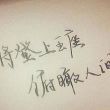 登上王座
俯瞰人间